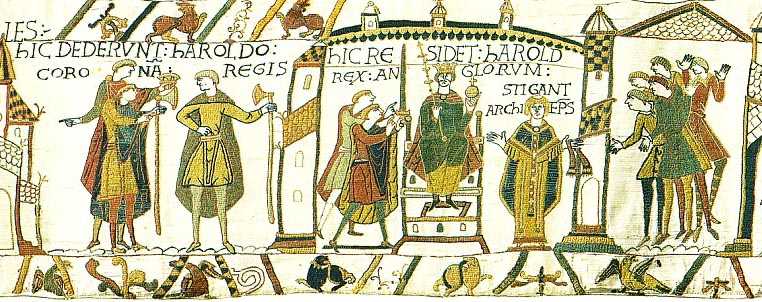 IES:-
hIC DEDERVNT: hAROLDO:
CORO NA: REGIS
hIC RE SIDET: hAROLD
REX: AN GLORVM:
STIGANT
ARChI EPS